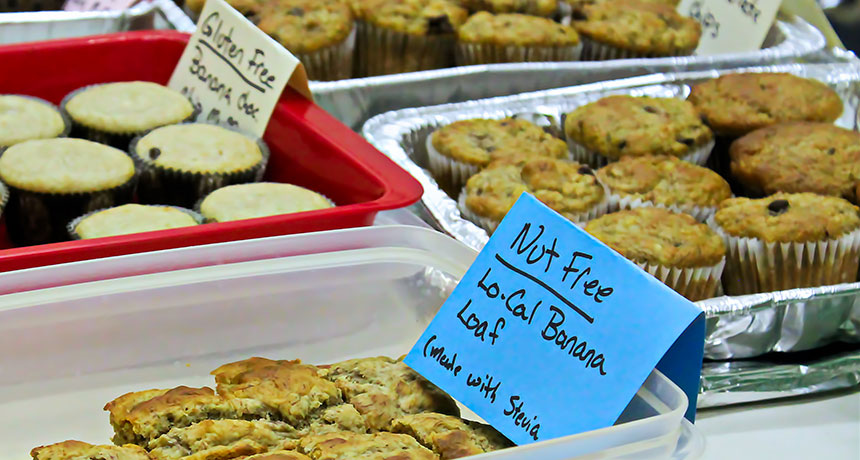 Gluten Free
Banana Choc
Chip
Nut Free
Lo-Cal Banana
Loaf
(made with Stevia